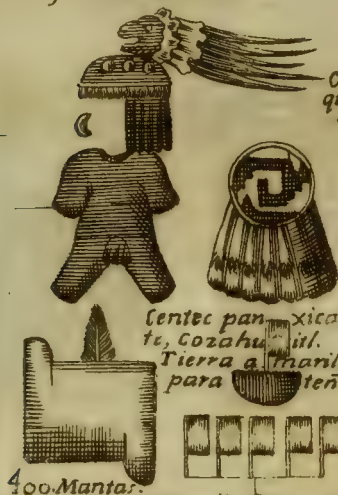 Centec pan xica
te, Cozahuitl.
Tierra amaril
para teñ
400 Mantas.